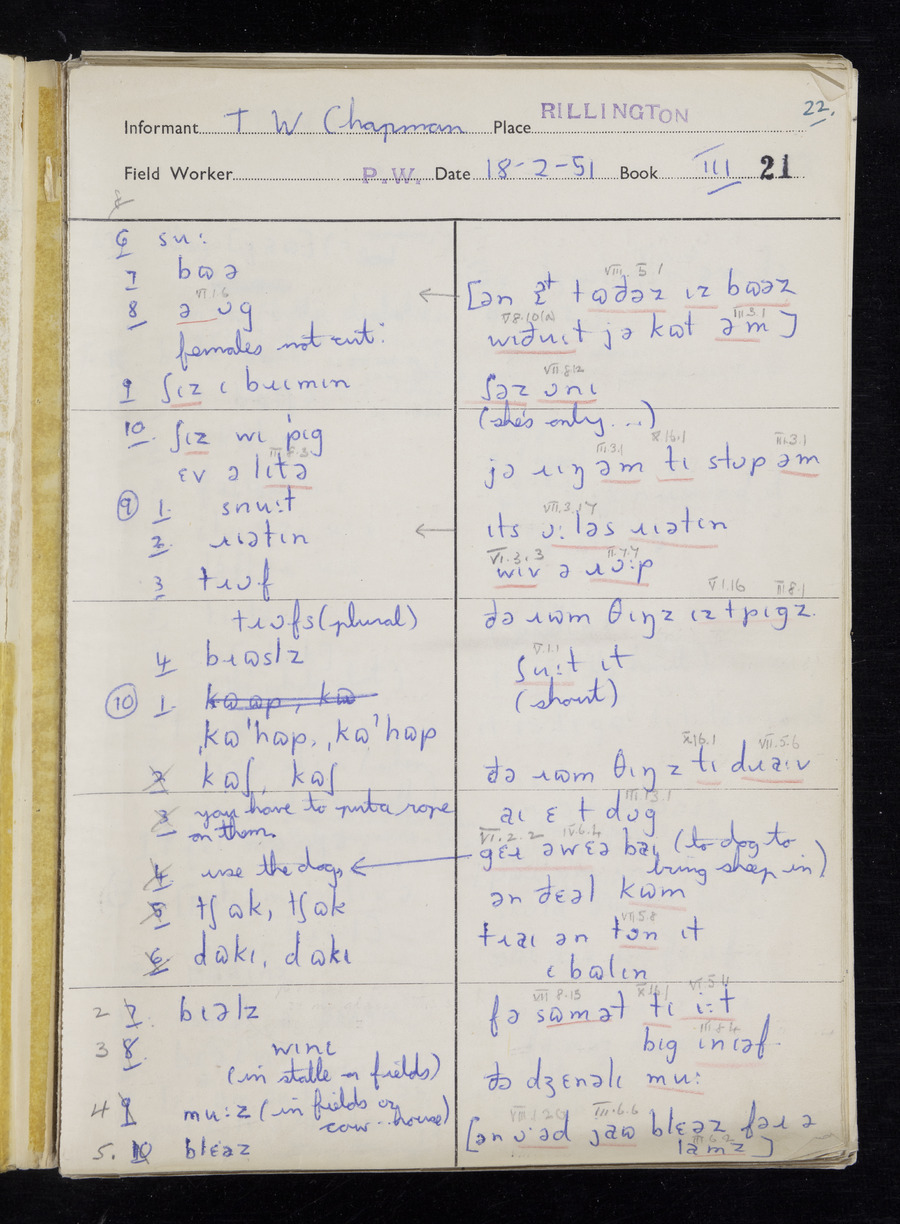 22.
Informant T W Chapman Place RILLINGTON
Field Worker P.W. Date 18-2-51 Book III 21
8
6 suː
7 bɷə
VI.1.6
8 ə ɔg
females not cut:
9 ʃɪz ɪ bɹɪmɪn
10. ʃɪz wɪ pɪg
ɛv ə lɪtə
⑨ 1. snuːt
2. ɹɪətɪn
3 tɹɔf
tɹɔfs (plural)
4 bɹɷslz
⑩ 1.
ˌkɷˈhɷp, ˌkɷˈhɷp
2 kɷʃ, kɷʃ
3 you have to put a rope
on them
4 use the dogs
5 tʃɷk, tʃɷk
6 dɷkɪ, dɷkɪ
2 7. bɪəlz
3 8. wɪnɪ
(in stable or fields)
4 9 muːz (in fields or
cow-house)
5. 10 blɛəz
VIII.5.1
[ən t ɷðəz ɪz bɷəz
V.8.10(a) III.3.1
wɪðuːt jə kɷt əm]
VII.8.12
ʃəz ɔnɪ
(she's only...)
III.3.1 X.16.1 III.3.1
jə ɹɪŋ əm tɪ stɔp əm
VII.3.17
ɪts ɔːləs ɹɪətɪn
VI.3.3 II.7.7
wɪv ə ɹɔːp
V.1.16 III.8.1
ðə ɹɷm θɪŋz ɪz t pɪgz.
V.1.1
ʃuːt ɪt
(shout)
X.16.1 VII.5.6
ðə ɹɷm θɪŋz tɪ dɹaɪv
III.13.1
aɪ ɛ t dɔg
VI.2.2 IV.6.4
gɛɹ əwɛə baɪ (to dog to
bring sheep in)
ən ðɛəl kɷm
VII.5.8
tɹaɪ ən tɔn ɪt
ɪ bɷlɪn
VII.8.13 X.16.1 VI.5.11
fə sɷmət tɪ iːt
III.8.4
bɪg ɪnɪəf.
ðə dʒɛnəlɪ muː
VIII.1.20 III.6.6
[ən ɔəd jaɷ blɛəz fəɹ ə
III.6.2
lamz]